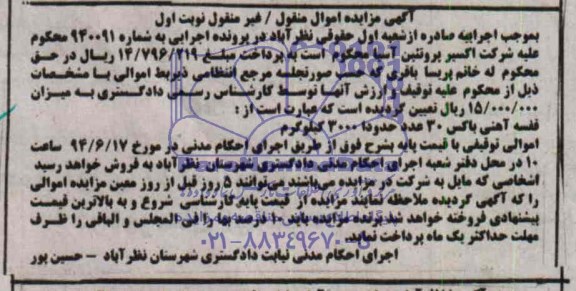 آگهی مزایده اموال منقول / غیر منقول نوبت اول
بموجب اجراییه صادره ازشعبه اول حقوقی نظرآباد در پرونده اجرایی به شماره ۹۴۰۰۹۱ محکوم
علیه شرکت اکسیر پروتئین آسیا محکوم است به پرداخت مبلغ ۱۴/۷۹۶/۲۱۹ ریال در حق
محکوم له خانم پریسا باقری که حسب صورتجلسه مرجع انتظامی ذیربط اموالی با مشخصات
ذیل از محکوم علیه توقیف و ارزش آنها توسط کارشناس رسمی دادگستری به میزان
۱۵/۰۰۰/۰۰۰ ریال تعیین گردیده است که عبارت است از :
قفسه آهنی باکس ۳۰ عدد حدودا ۳۰۰۰ کیلوگرم
اموالی توقیفی با قیمت پایه بشرح فوق از طریق اجرای احکام مدنی در مورخ ۹۴/۶/۱۷ ساعت
۱۰ در محل دفتر شعبه اجرای احکام مدنی دادگستری شهرستان نظرآباد به فروش خواهد رسید
اشخاصی که مایل به شرکت در مزایده می باشند می‌توانند ۵ روز قبل از روز معین مزایده اموالی
را که آگهی گردیده ملاحظه نمایند مزایده از قیمت پایه کارشناسی شروع و به بالاترین قیمت
پیشنهادی فروخته خواهد شد برنده مزایده باید ۱۰ درصد بها را فی المجلس و الباقی را ظرف
مهلت حداکثر یک ماه پرداخت نماید.
۰۲۱-۸۸۳۴۹۶۷۰
اجرای احکام مدنی نیابت دادگستری شهرستان نظرآباد – حسین پور